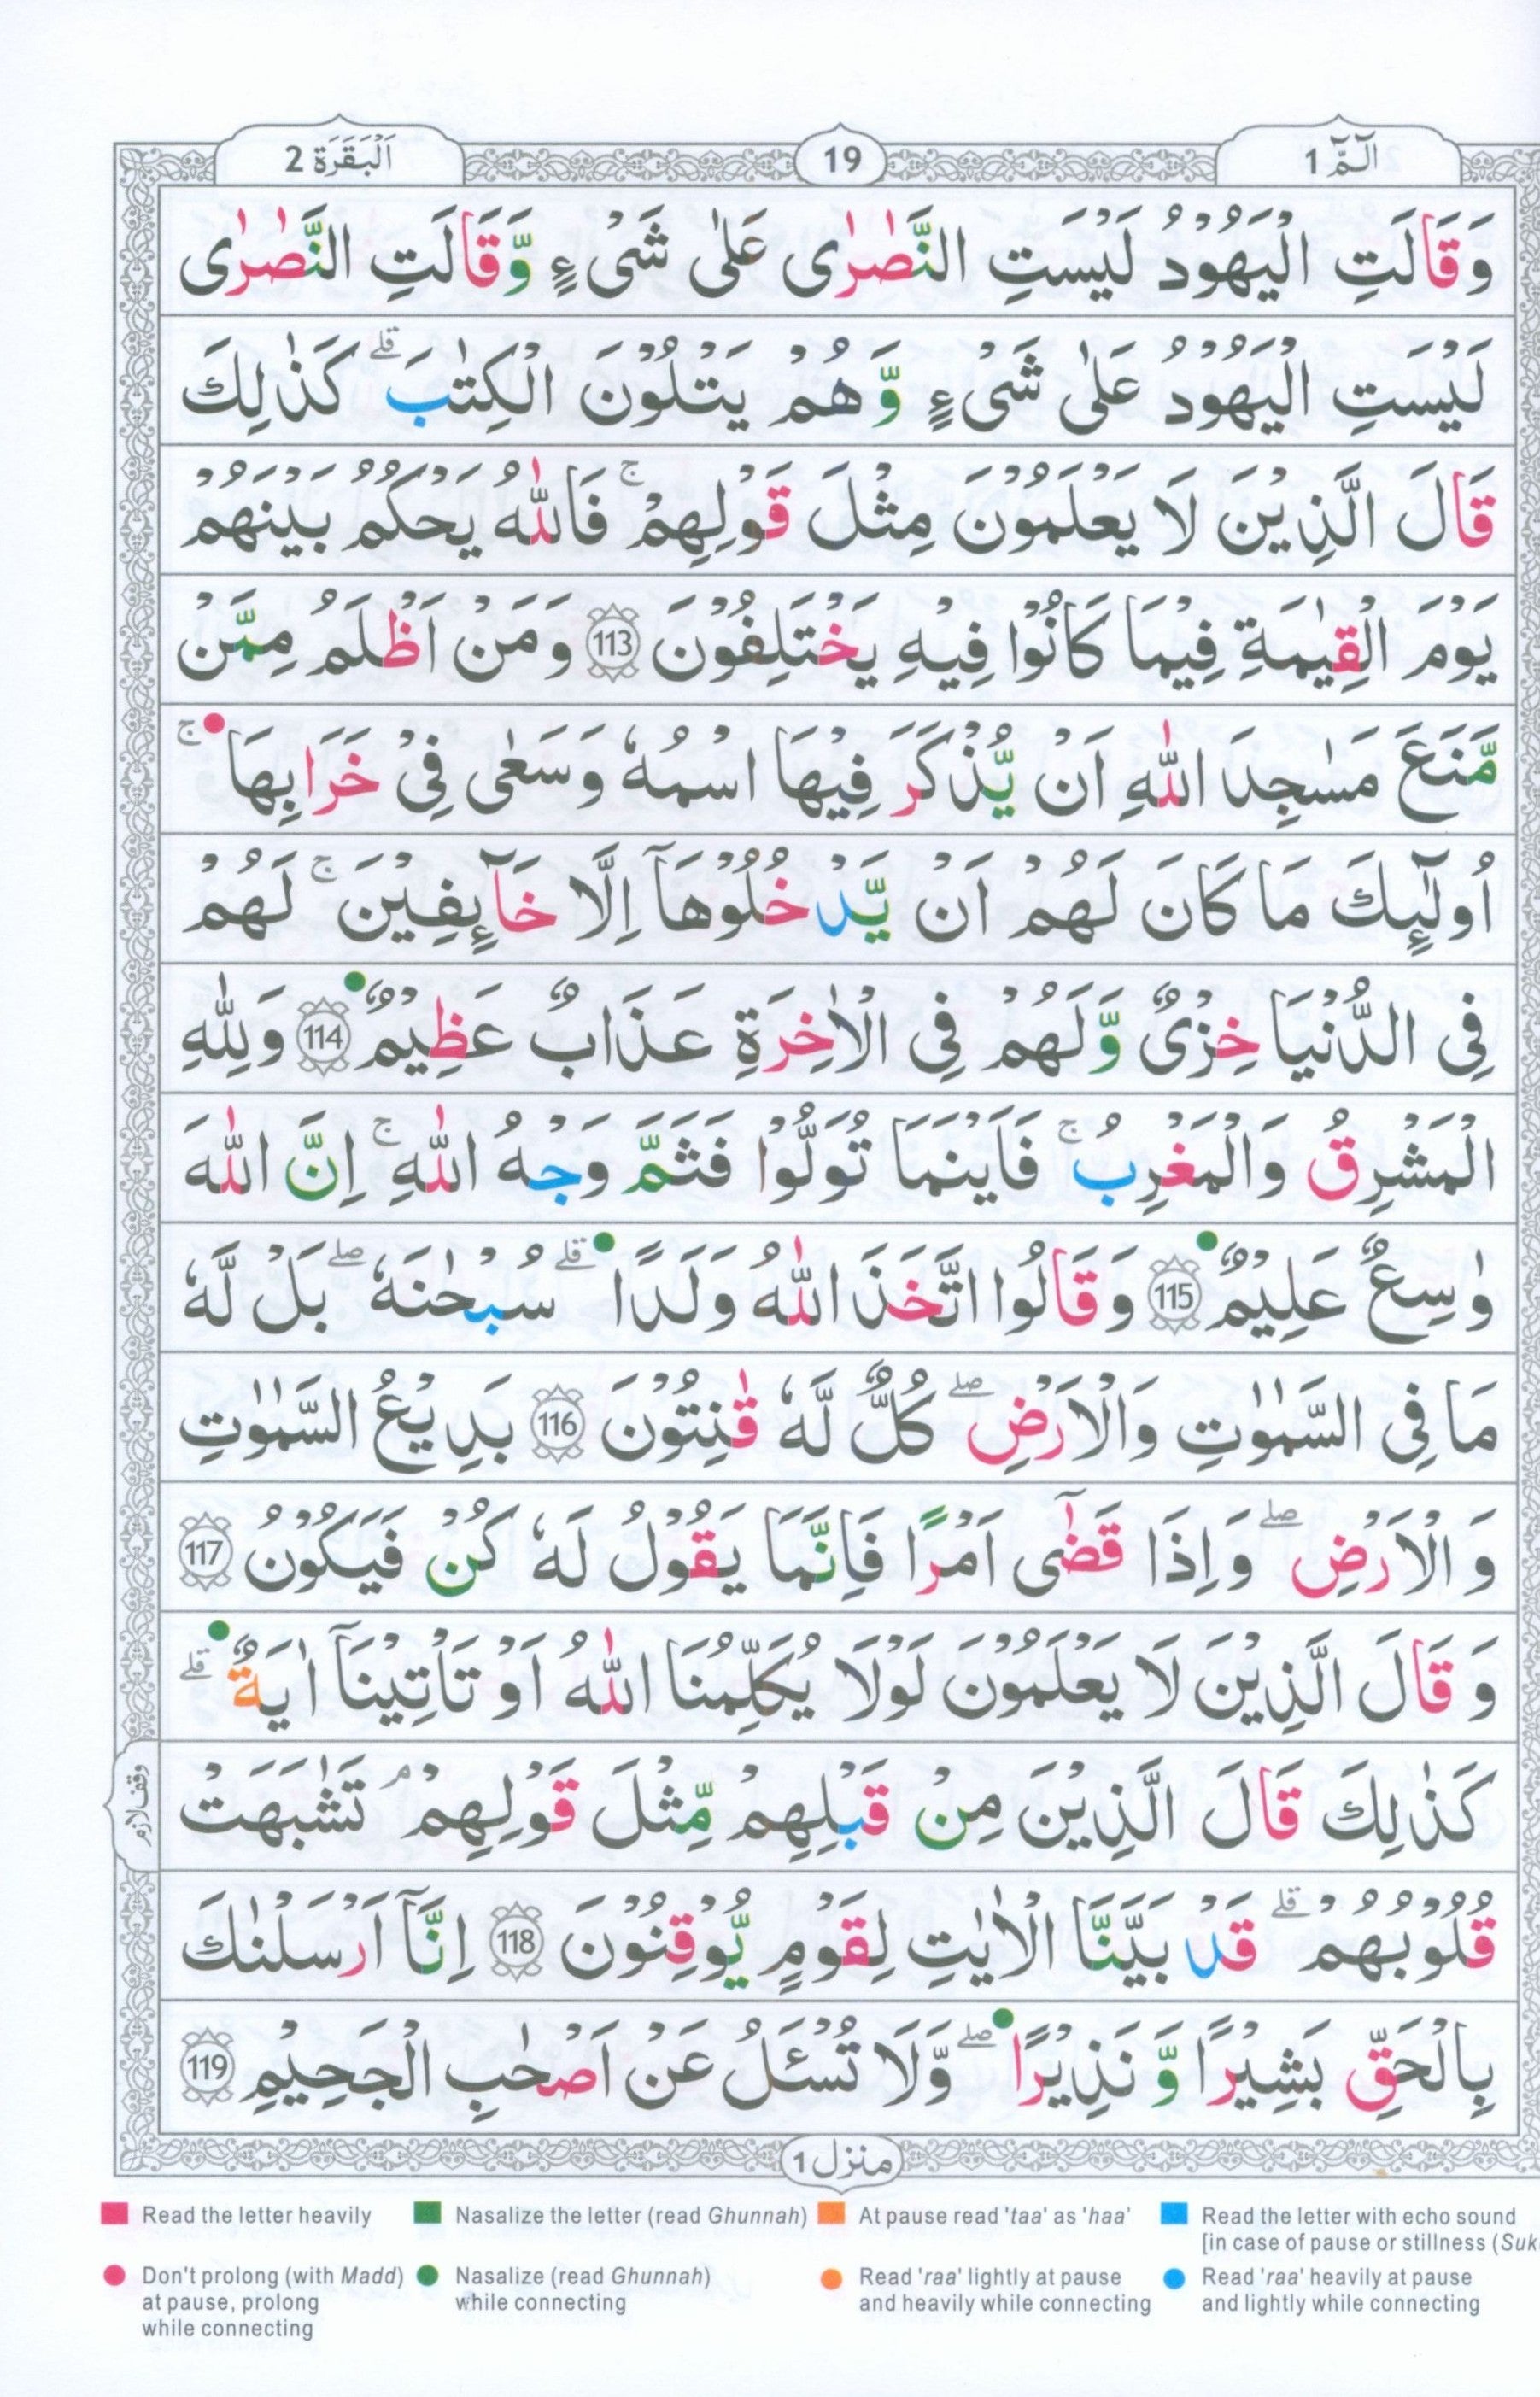 الٓمّٓ 1
19
اَلْبَقَرَة 2
وَقَالَتِ الْيَهُوْدُ لَيْسَتِ النَّصٰرٰى عَلٰى شَىْءٍ وَّقَالَتِ النَّصٰرٰى
لَيْسَتِ الْيَهُوْدُ عَلٰى شَىْءٍ وَّهُمْ يَتْلُوْنَ الْكِتٰبَ ۗ كَذٰلِكَ
قَالَ الَّذِيْنَ لَا يَعْلَمُوْنَ مِثْلَ قَوْلِهِمْ ۚ فَاللّٰهُ يَحْكُمُ بَيْنَهُمْ
يَوْمَ الْقِيٰمَةِ فِيْمَا كَانُوْا فِيْهِ يَخْتَلِفُوْنَ 113 وَمَنْ اَظْلَمُ مِمَّنْ
مَّنَعَ مَسٰجِدَ اللّٰهِ اَنْ يُّذْكَرَ فِيْهَا اسْمُهٗ وَسَعٰى فِىْ خَرَابِهَا ۚ
اُولٰٓئِكَ مَا كَانَ لَهُمْ اَنْ يَّدْخُلُوْهَآ اِلَّا خَآئِفِيْنَ ۚ لَهُمْ
فِى الدُّنْيَا خِزْىٌ وَّلَهُمْ فِى الْاٰخِرَةِ عَذَابٌ عَظِيْمٌ 114 وَلِلّٰهِ
الْمَشْرِقُ وَالْمَغْرِبُ ۚ فَاَيْنَمَا تُوَلُّوْا فَثَمَّ وَجْهُ اللّٰهِ ۚ اِنَّ اللّٰهَ
وٰسِعٌ عَلِيْمٌ 115 وَقَالُوا اتَّخَذَ اللّٰهُ وَلَدًا ۗ سُبْحٰنَهٗ ۖ بَلْ لَّهٗ
مَا فِى السَّمٰوٰتِ وَالْاَرْضِ ۖ كُلٌّ لَّهٗ قٰنِتُوْنَ 116 بَدِيْعُ السَّمٰوٰتِ
وَالْاَرْضِ ۖ وَاِذَا قَضٰٓى اَمْرًا فَاِنَّمَا يَقُوْلُ لَهٗ كُنْ فَيَكُوْنُ 117
وَقَالَ الَّذِيْنَ لَا يَعْلَمُوْنَ لَوْلَا يُكَلِّمُنَا اللّٰهُ اَوْ تَاْتِيْنَآ اٰيَةٌ ۗ
كَذٰلِكَ قَالَ الَّذِيْنَ مِنْ قَبْلِهِمْ مِّثْلَ قَوْلِهِمْ ۘ تَشَابَهَتْ
وقف لازم
قُلُوْبُهُمْ ۗ قَدْ بَيَّنَّا الْاٰيٰتِ لِقَوْمٍ يُّوْقِنُوْنَ 118 اِنَّآ اَرْسَلْنٰكَ
بِالْحَقِّ بَشِيْرًا وَّنَذِيْرًا ۖ وَّلَا تُسْـَٔلُ عَنْ اَصْحٰبِ الْجَحِيْمِ 119
منزل 1
Read the letter heavily
Nasalize the letter (read Ghunnah)
At pause read 'taa' as 'haa'
Read the letter with echo sound
[in case of pause or stillness (Suk
Don't prolong (with Madd)
at pause, prolong
while connecting
Nasalize (read Ghunnah)
while connecting
Read 'raa' lightly at pause
and heavily while connecting
Read 'raa' heavily at pause
and lightly while connecting